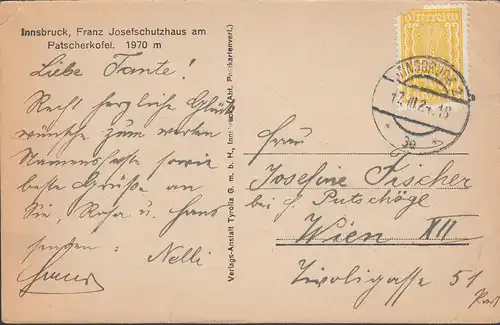 Innsbruck, Franz Josefschutzhaus am
Patscherkofel. 1970 m
Liebe Tante!
Recht herzliche Glück
wünsche zum werten
Namensfeste sowie
beste Grüße an
Sie, Rosa u. Hans
senden:
Nelli
Verlags-Anstalt Tyrolia G. m. b. H., Innsbruck (Abt. Postkartenverl.)
INNSBRUCK 2
17.III.24.18
Frau
Josefine Fischer
bei J. Putschögl
Wien XII
Tivoligasse 51